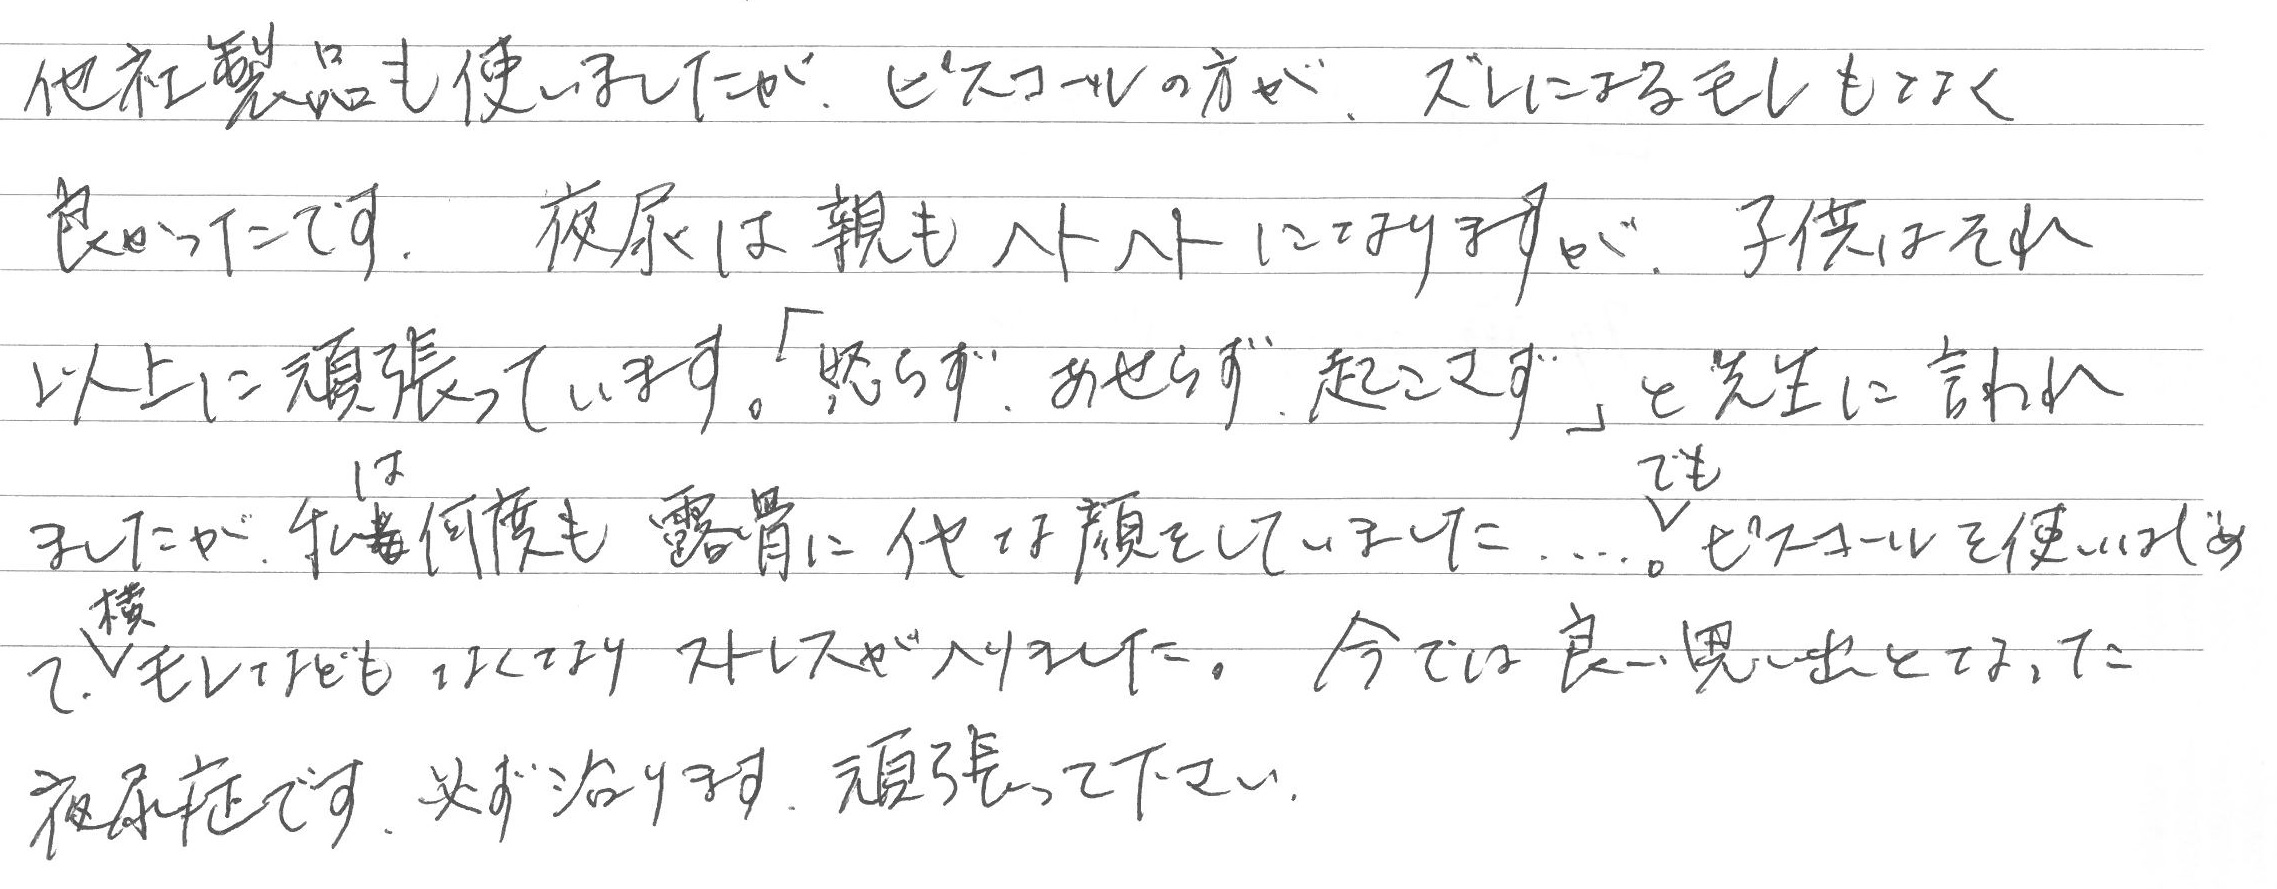 他社製品も使いましたが、ピスコールの方が、ズレによるモレもなく
良かったです。 夜尿は親もヘトヘトになりますが、子供はそれ
以上に頑張っています。「怒らず、あせらず、起こさず」と先生に言われ
ましたが、私は何度も露骨に イヤな顔をしていました‥‥。でもピスコールを使いはじめ
て、横モレなども なくなり ストレスが入りました。 今では良い思い出となった
夜尿症です。必ず治ります。頑張って下さい。